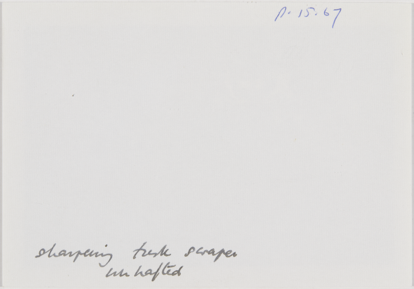 A. 15. 67
sharpening tusk scraper
unhafted